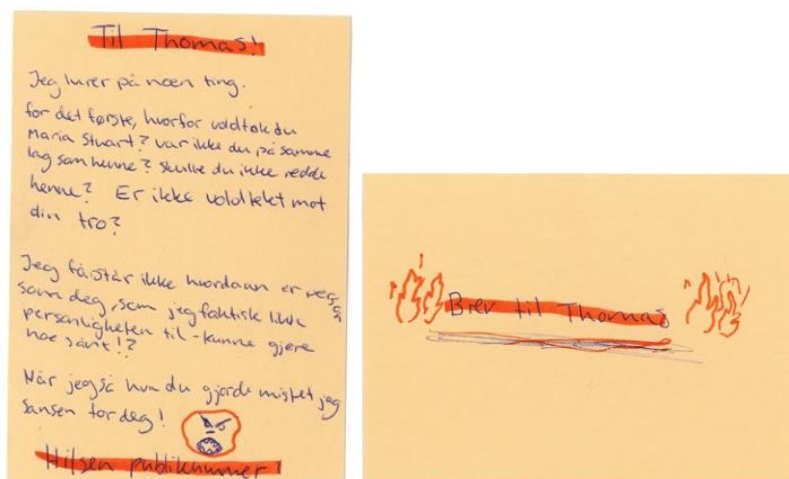 Til Thomas!
Jeg lurer på noen ting.
for det første, hvorfor voldtok du
Maria Stuart? var ikke du på samme
lag som henne? skulle du ikke redde
henne? Er ikke voldtekt mot
din tro?
Jeg fårstår ikke hvordan er person
som deg, som jeg faktisk likte
personligheten til - kunne gjøre
noe sånt!?
Når jeg så hva du gjorde mistet jeg
sansen for deg!
Hilsen publikummer!
Brev til Thomas